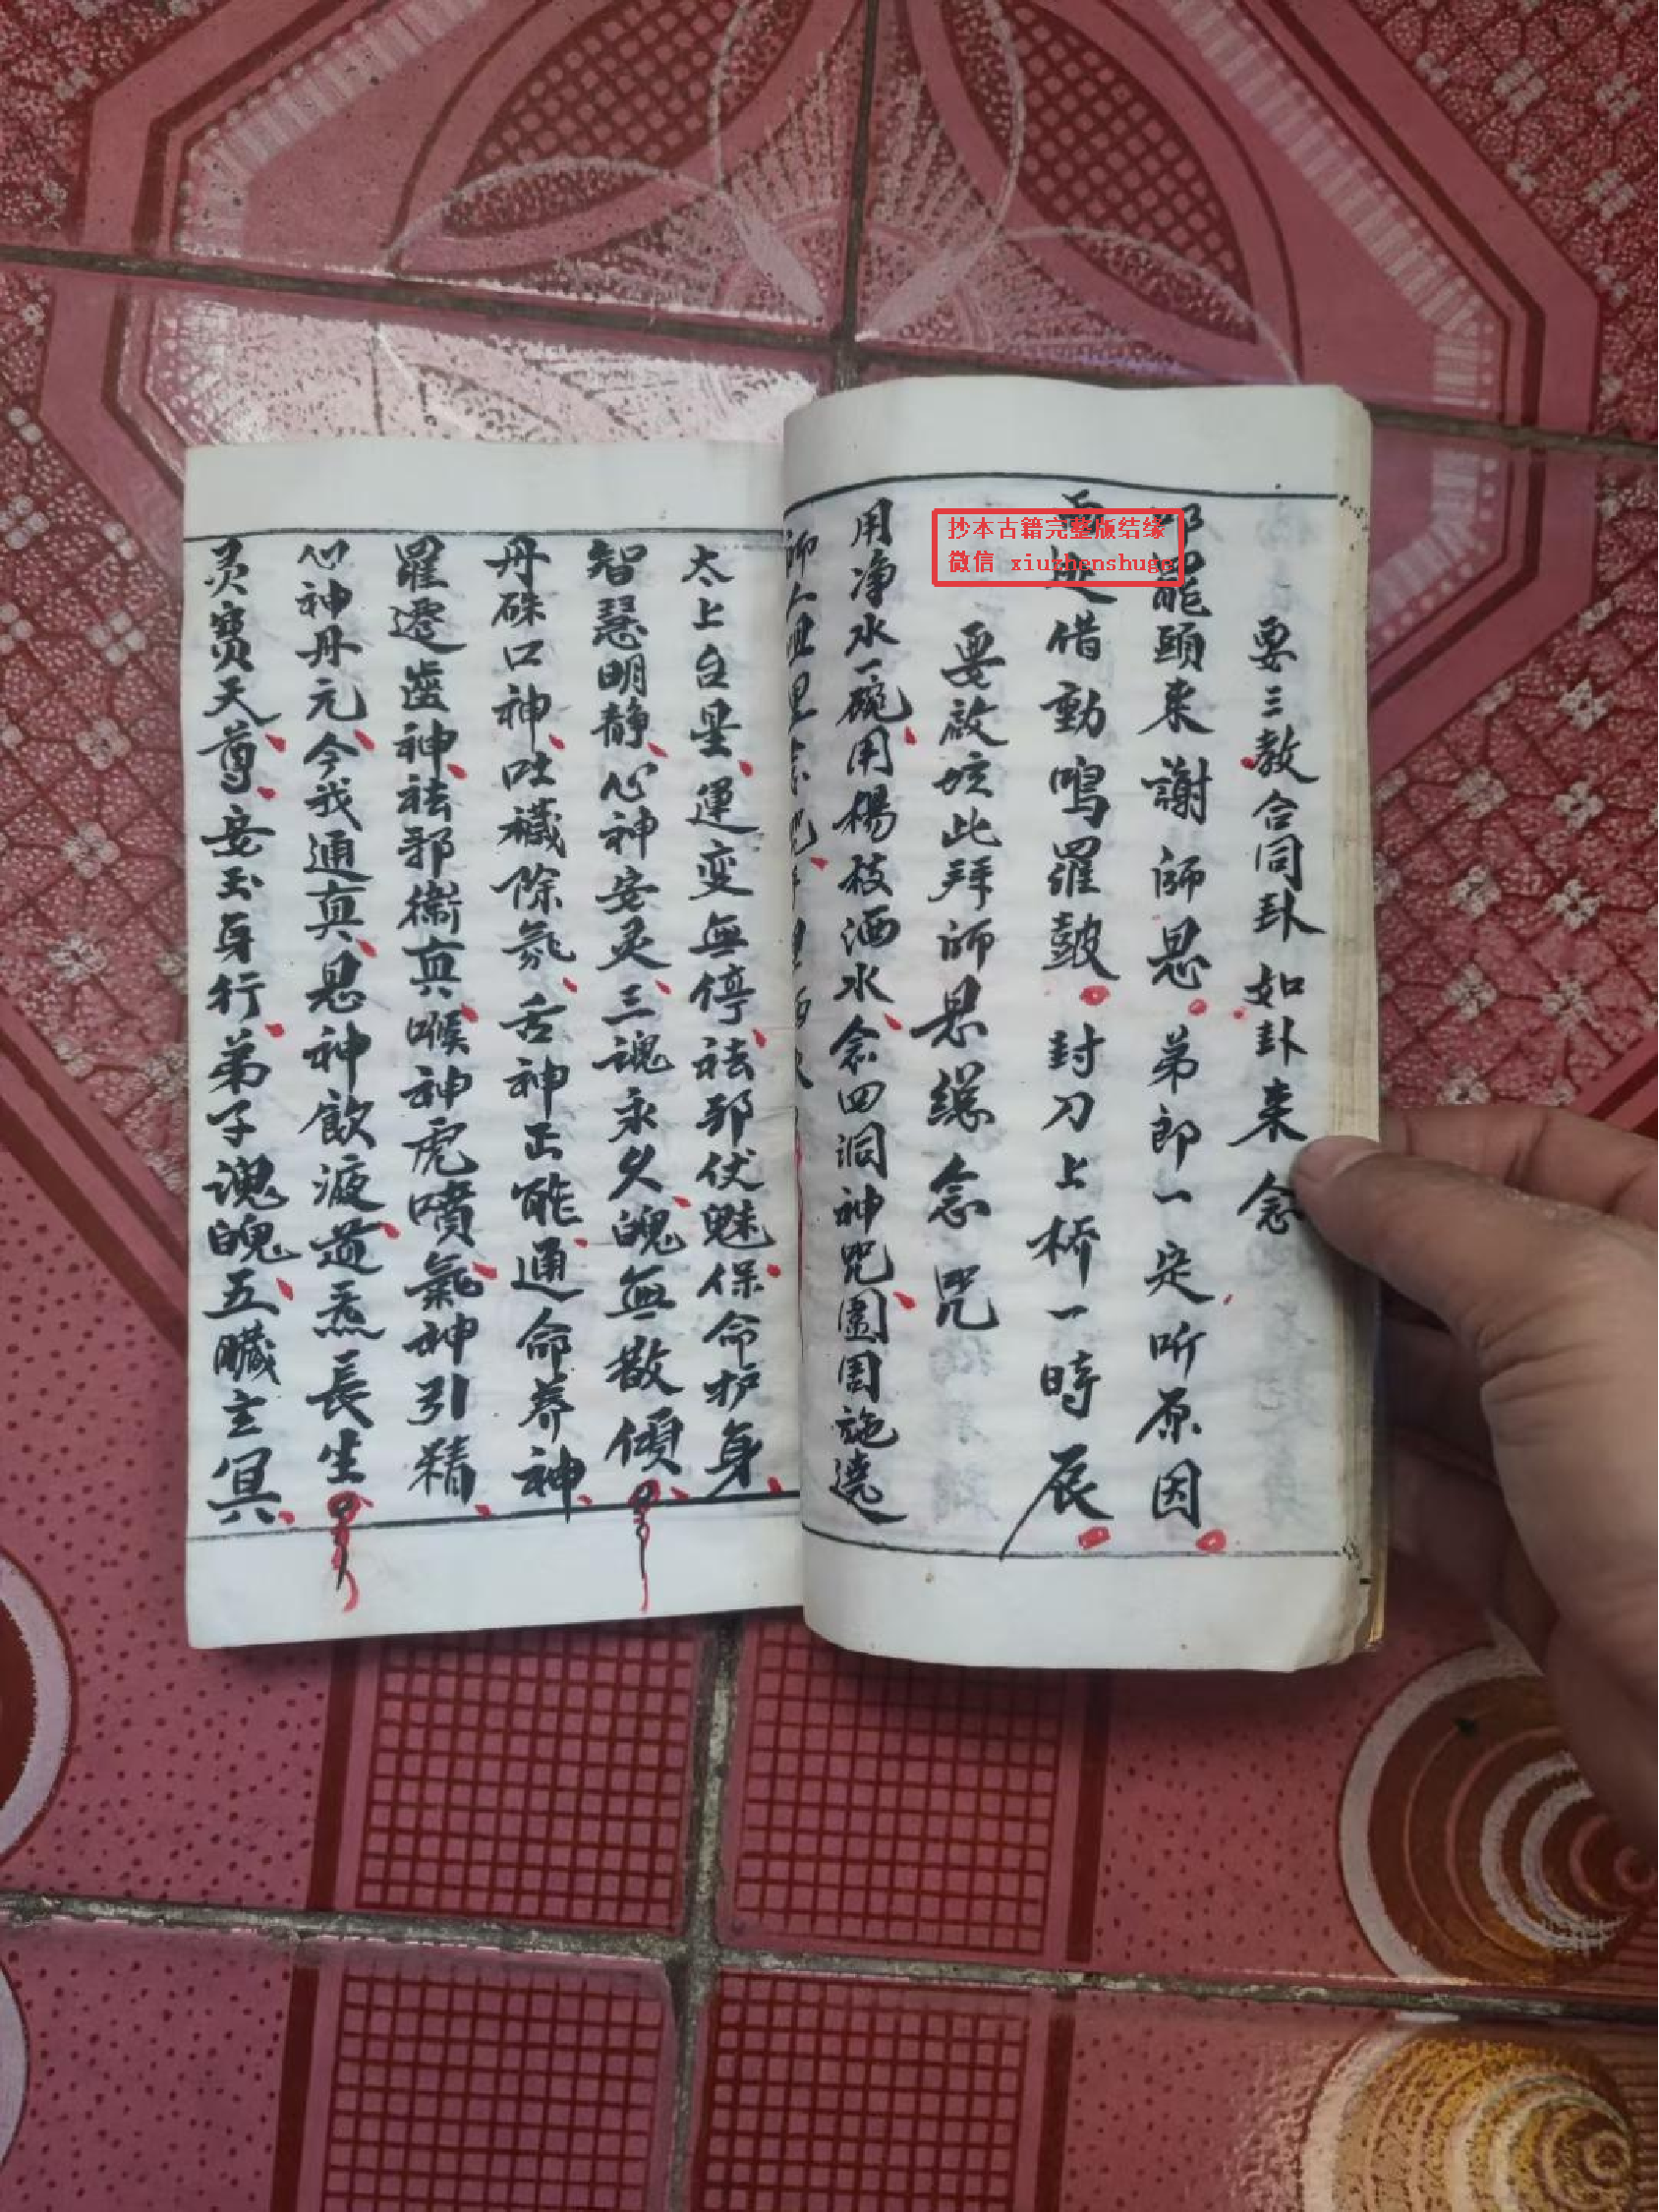 抄本古籍完整版结缘
微信 xiuzhenshuge
要三教合同卦如卦来念
叩罷頭来謝師恩弟郎一定听原因
借動鳴羅皷封刀上桥一時辰
要啟坛此拜師恩総念咒
用净水一碗用楊枝洒水念四洞神咒圍围施遶
太上台星運变無停祛邪伏魅保命护身
智慧明静心神安灵三魂永久魄無散傾
丹硃口神吐穢除氛舌神正能通命养神
羅遷齒神祛邪衛真喉神虎噴氣神引精
心神丹元令我通真思神飲液道炁長生
灵寶天尊安玉身行弟子魂魄五臟玄冥